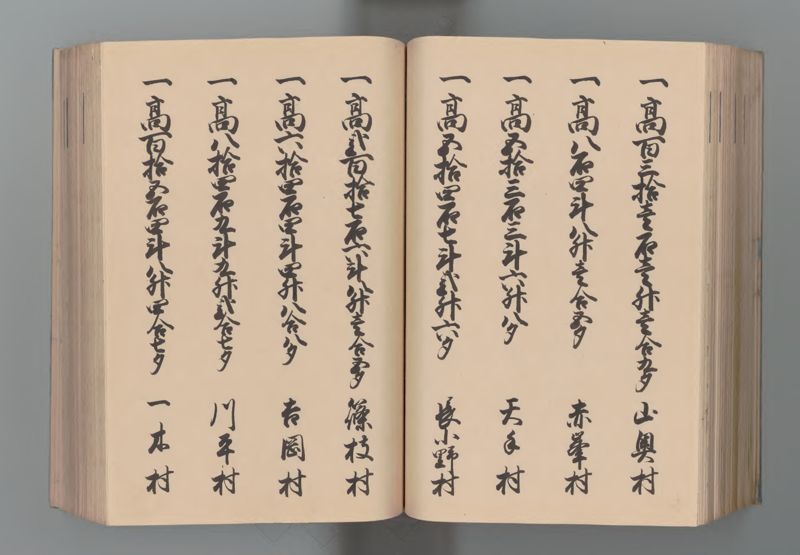 一高百三拾壱石壱升壱合九夕 山奥村
一高八石四斗八升壱合五夕 赤峯村
一高五拾三石三斗六升八夕 天手村
一高五拾四石七斗弐升六夕 長小野村
一高弐百拾七石六斗八升壱合五夕 篠枝村
一高六拾四石四斗四升八合八夕 吉岡村
一高八拾四石九斗九升弐合七夕 川平村
一高百拾五石四斗八升四合七夕 一本村